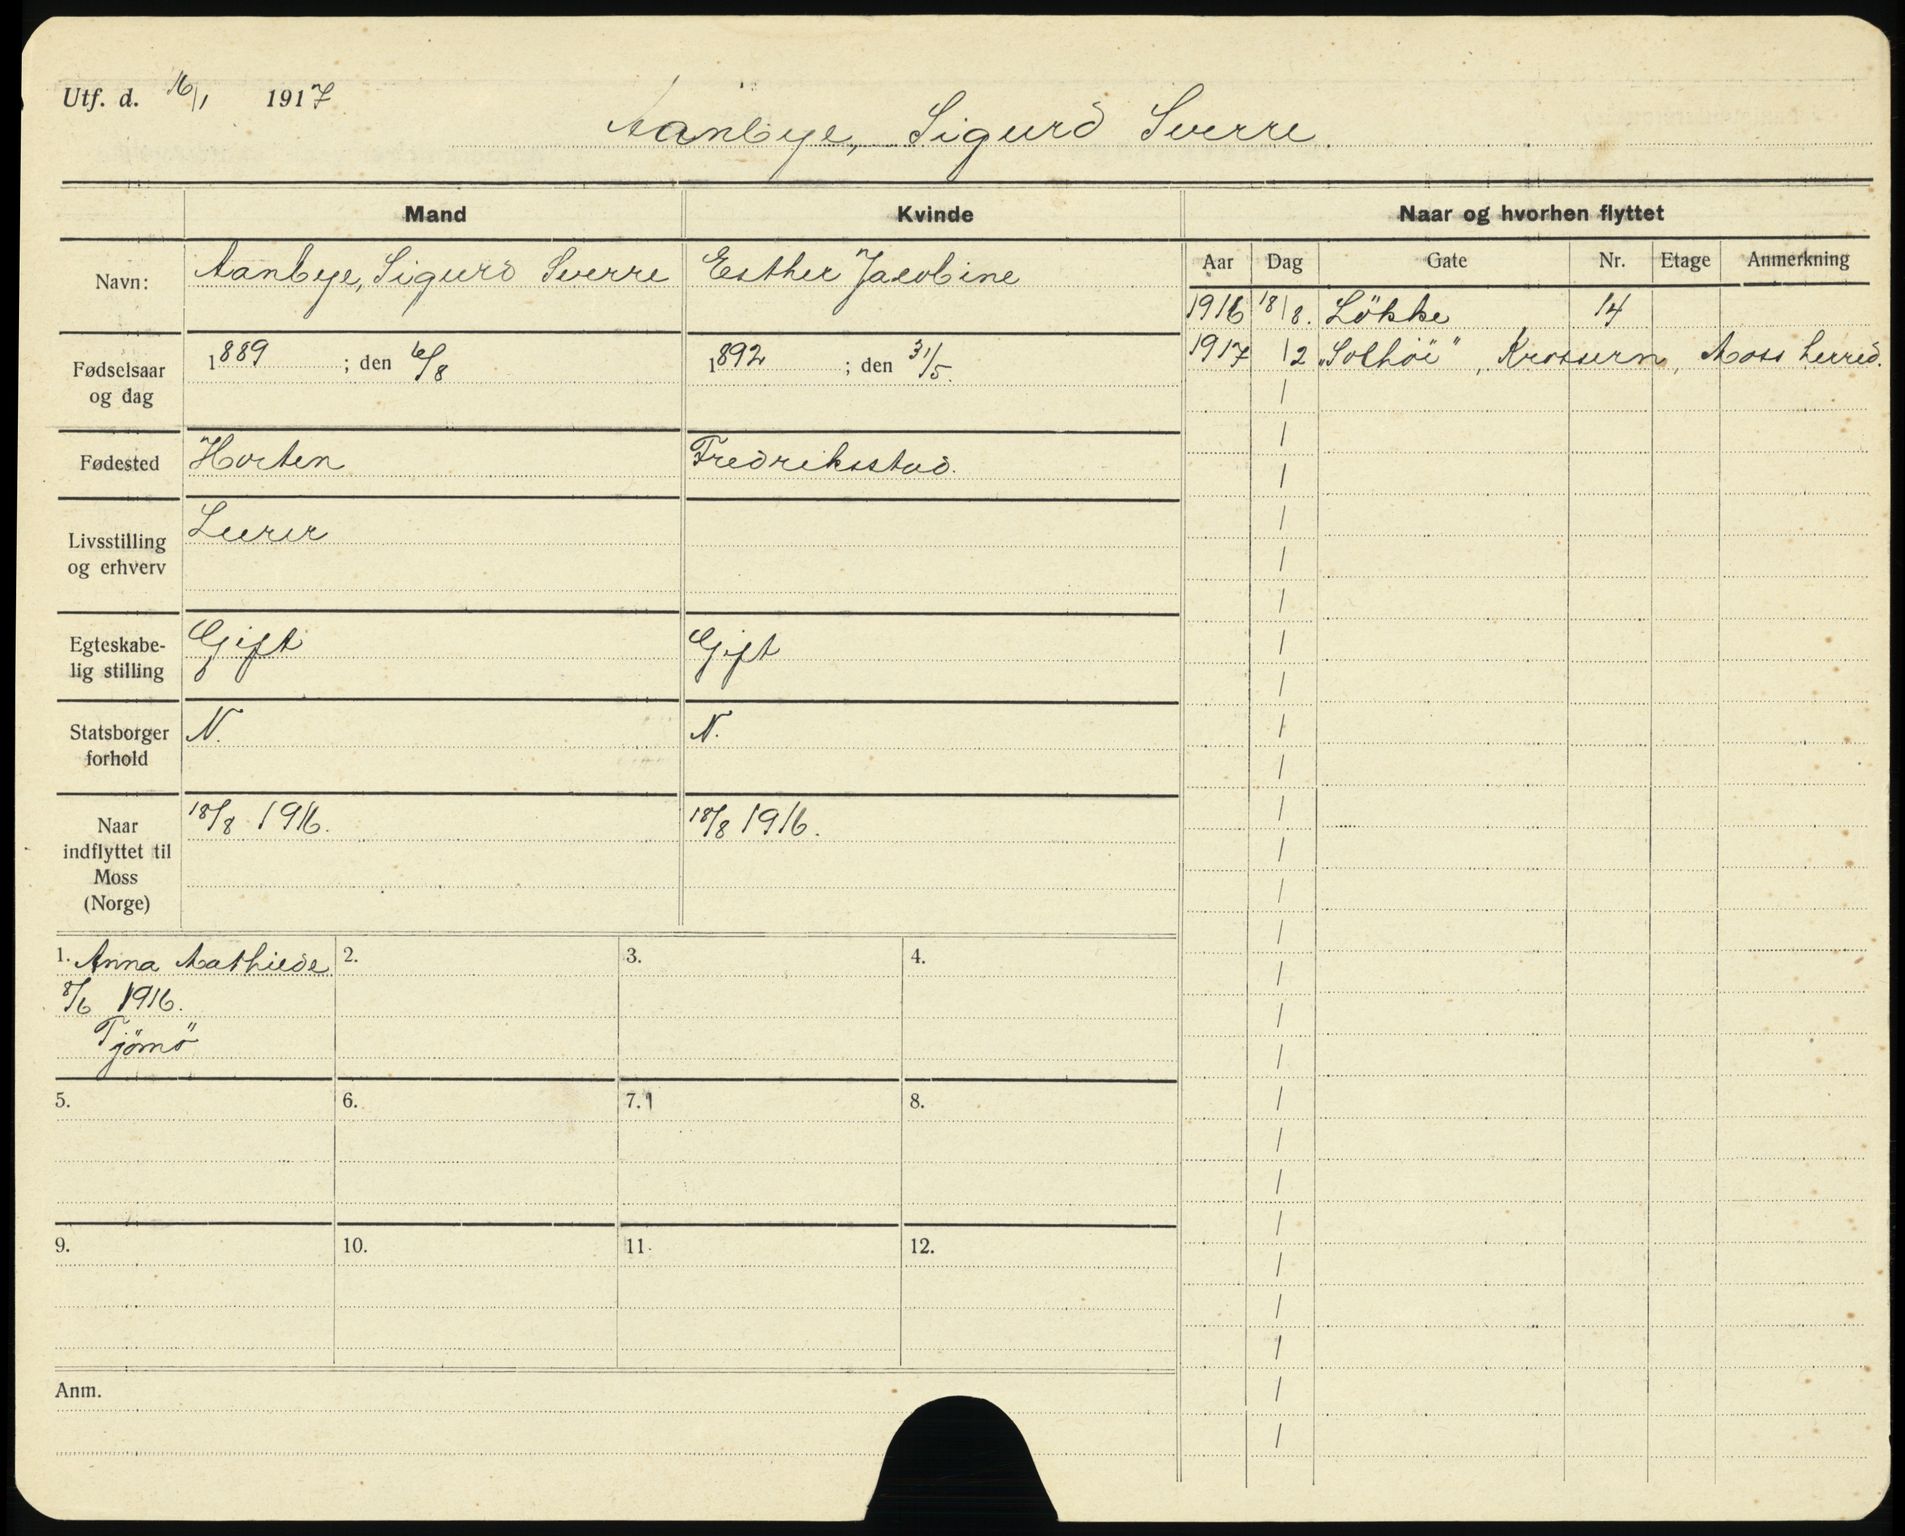 Utf. d. 16/1 1917
Aanbye, Sigurd Sverre
Mand Kvinde Naar og hvorhen flyttet
Navn: Aanbye, Sigurd Sverre Esther Jacobine
Aar Dag Gate Nr. Etage Anmerkning
1916 18/8. Lökke 14
1917 /2 „Solhöi", Krossern, Moss herred.
Fødselsaar og dag 1889 ; den 6/8 1892 ; den 31/5.
Fødested Horten Fredriksstad.
Livsstilling og erhverv Lærer
Egteskabe-
lig stilling Gift Gift
Statsborger
forhold N. N.
Naar
indflyttet til
Moss
(Norge) 18/8 1916. 18/8 1916.
1. Anna Mathilde 2. 3. 4.
8/6 1916.
Tjömö
5. 6. 7. 8.
9. 10. 11. 12.
Anm.